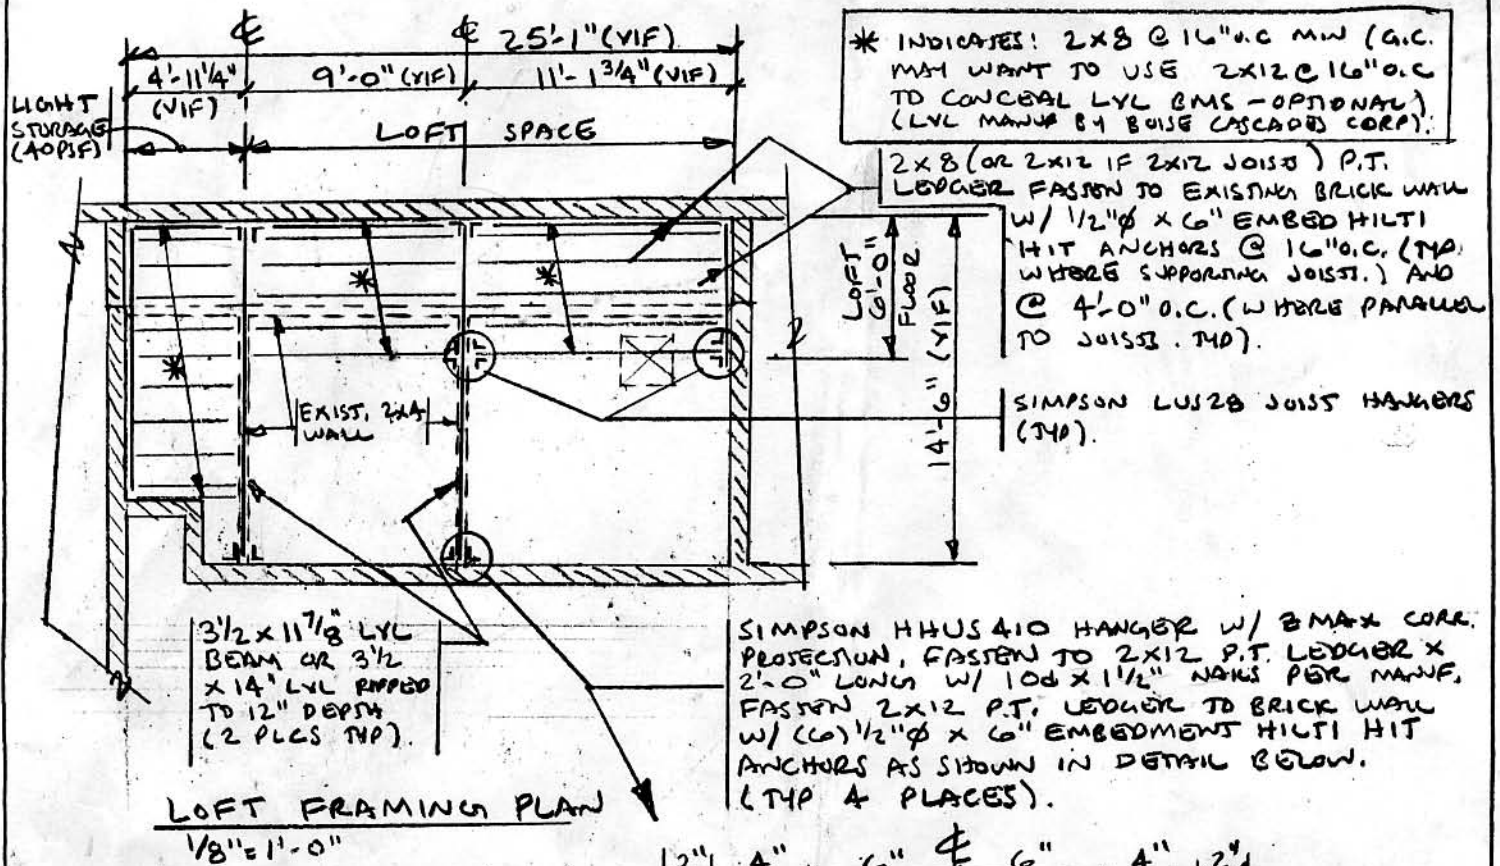 ℄ ℄ 25'-1" (VIF)
4'-11 1/4" (VIF) 9'-0" (VIF) 11'-1 3/4" (VIF)
LIGHT
STORAGE
(40PSF)
LOFT SPACE
* INDICATES: 2X8 @ 16" O.C MIN (G.C.
MAY WANT TO USE 2X12 @ 16" O.C
TO CONCEAL LVL BMS - OPTIONAL)
(LVL MANUF BY BOISE CASCADES CORP).
2X8 (OR 2X12 IF 2X12 JOISTS) P.T.
LEDGER FASTEN TO EXISTING BRICK WALL
W/ 1/2"Ø X 6" EMBED HILTI
HIT ANCHORS @ 16" O.C. (TYP.
WHERE SUPPORTING JOISTS.) AND
@ 4'-0" O.C. (WHERE PARALLEL
TO JOISTS. TYP).
LOFT
6'-0"
FLOOR
14'-6" (VIF)
* * *
EXIST. 2X4
WALL
SIMPSON LUS28 JOIST HANGERS
(TYP).
3 1/2 X 11 7/8" LVL
BEAM OR 3 1/2
X 14" LVL RIPPED
TO 12" DEPTH
(2 PLCS TYP).
SIMPSON HHUS 410 HANGER W/ ZMAX CORR.
PROTECTION, FASTEN TO 2X12 P.T. LEDGER X
2'-0" LONG W/ 10d X 1 1/2" NAILS PER MANUF.
FASTEN 2X12 P.T. LEDGER TO BRICK WALL
W/ (6) 1/2"Ø X 6" EMBEDMENT HILTI HIT
ANCHORS AS SHOWN IN DETAIL BELOW.
(TYP 4 PLACES).
LOFT FRAMING PLAN
1/8"=1'-0"
2" 4" 6" ℄ 6" 4" 2"